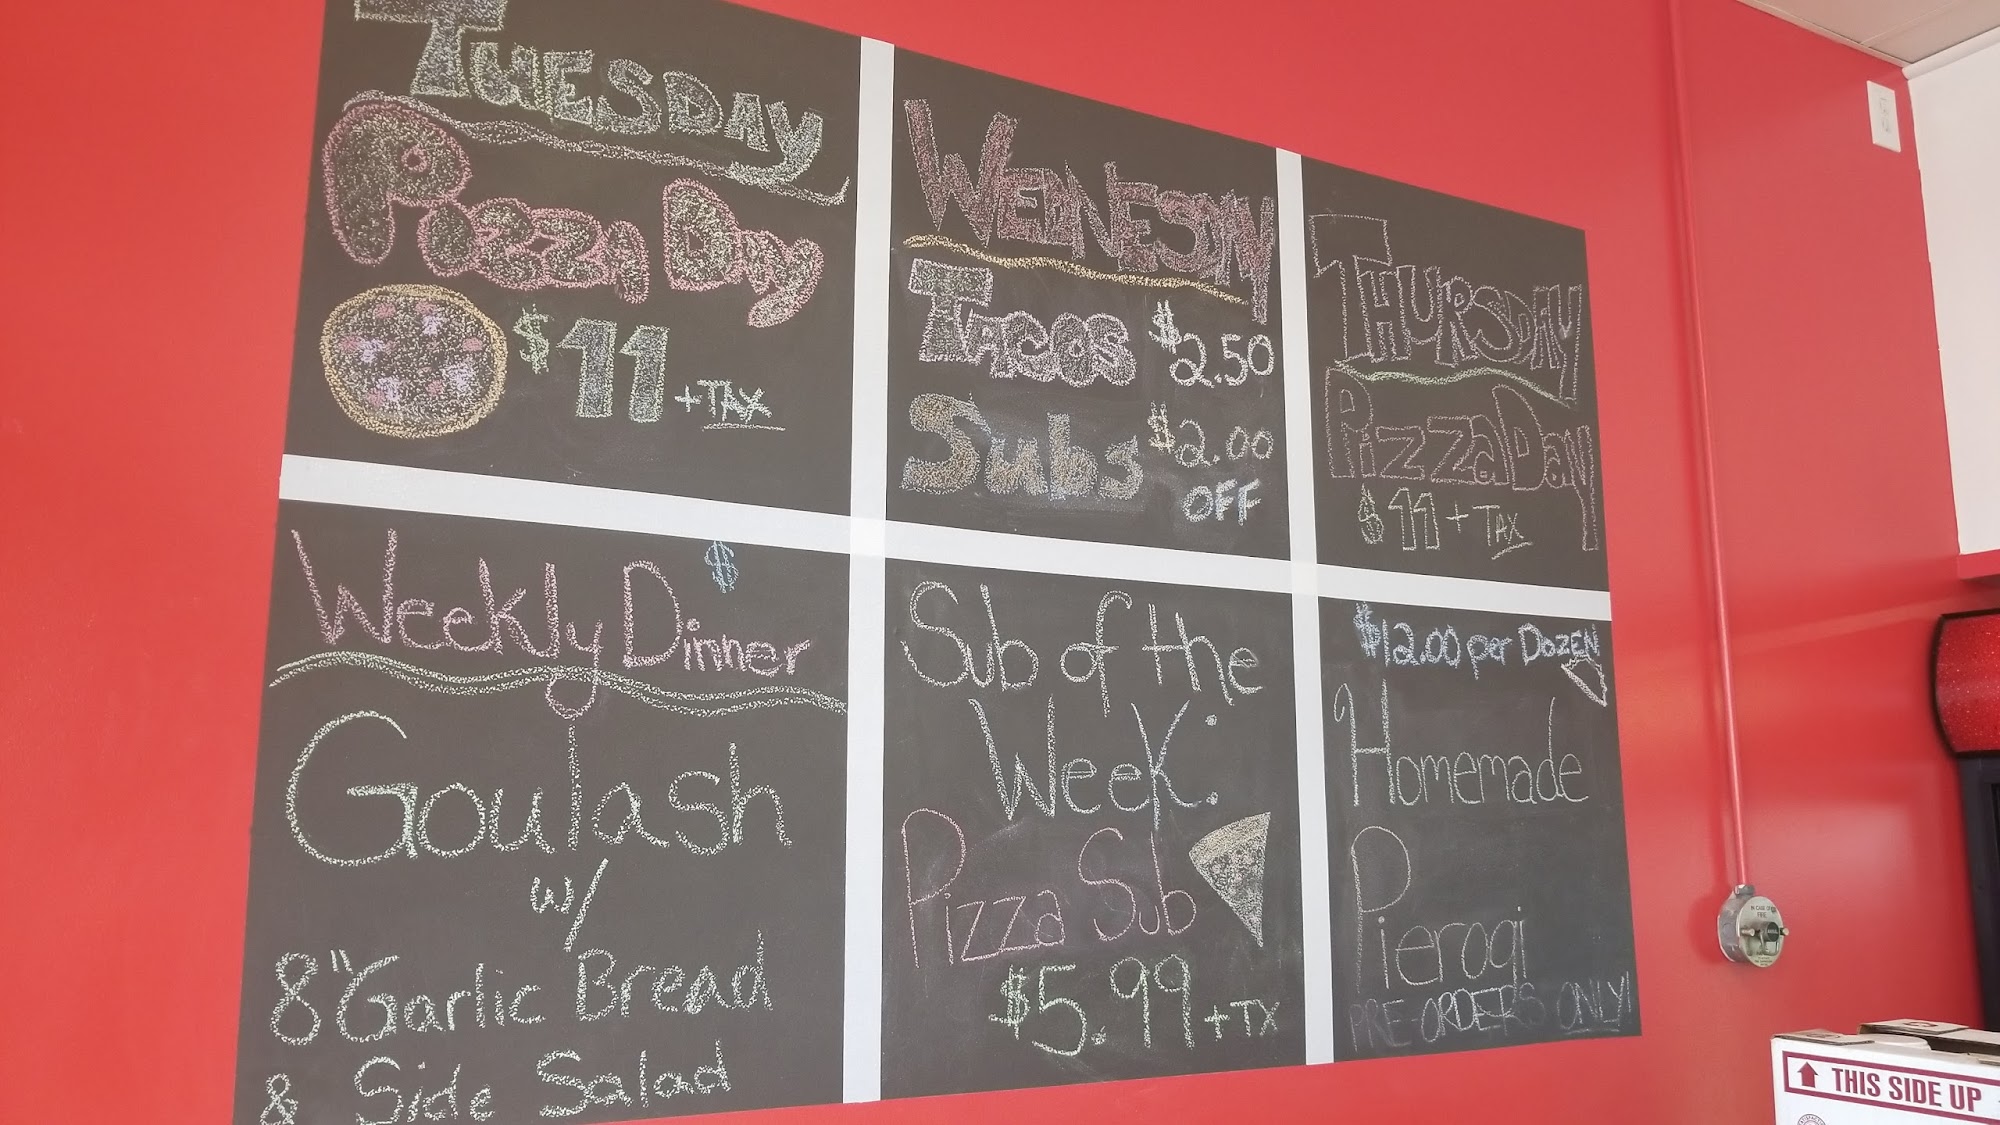 TUESDAY
PizzA DAy
$11 +TAX
WEDNESDAY
TACOS $2.50
Subs $2.00
OFF
THURSDAY
PizzaDay
$11 + TAX
Weekly Dinner $
Goulash
w/
8" Garlic Bread
& Side Salad
Sub of the
Week:
Pizza Sub
$5.99 +TX
$12.00 per DOZEN
Homemade
Pierogi
PRE-ORDERS ONLY!
IN CASE OF
FIRE
THIS SIDE UP